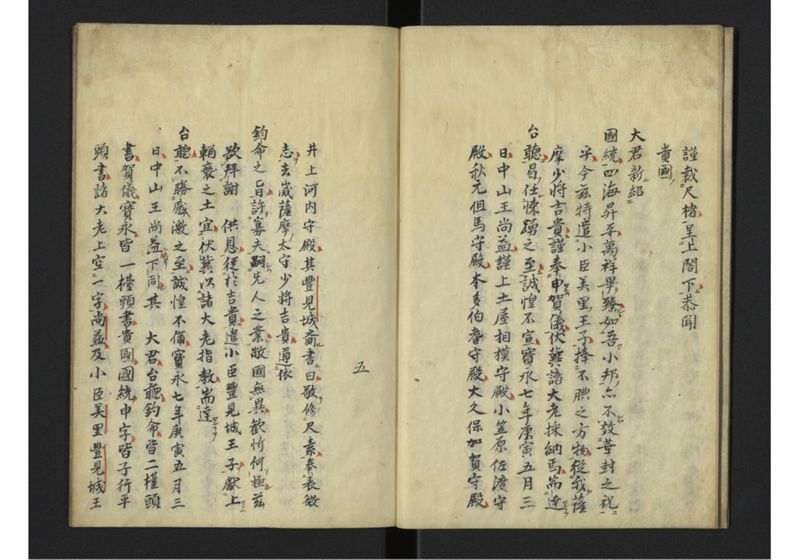 謹裁尺楮呈上閣下恭聞
貴國
大君新紹
國統四海昇平萬祥畢臻如吾小邦亦不效華封之祝
乎今茲特遣小臣美里王子捧不腆之方物從我薩
摩少将吉貴謹奉申賀儀伏冀諸大老採納焉耑達
台聽曷任悚踊之至誠惶不宣寳永七年庚寅五月三
日中山王尚益謹上土屋相模守殿小笠原佐渡守
殿秋元但馬守殿本多伯耆守殿大久保加賀守殿
五
井上河内守殿其豊見城賫書曰敬修尺素奉表微
志去歳薩摩太守少将吉貴遵依
鈞命之旨許寡夫嗣先人之業敝國無異歓忻何極茲
欲拜謝　供恩従於吉貴遣小臣豊見城王子獻上
輶褻之土宜伏冀以諸大老指教耑達
台聽不勝感激之至誠惶不備寳永七年庚寅五月三
日中山王尚益下同其　大君台聽鈞命皆二檯頭
書賀儀寳永皆一檯頭書貴國國統申字皆子行平
頭書諸大老上空一字尚益及小臣美里豊見城王